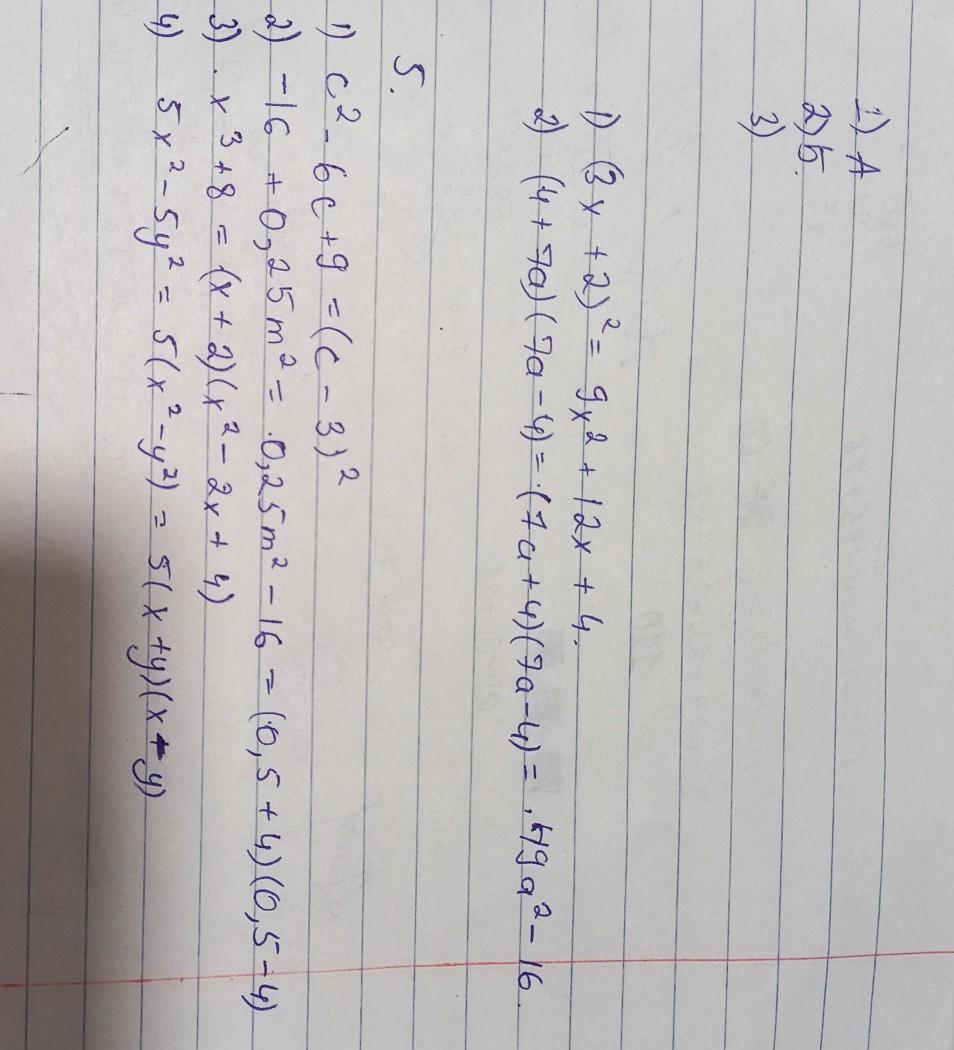 1) A
2) Б.
3)
1) (3x + 2)² = 9x² + 12x + 4.
2) (4 + 7a)(7a - 4) = (7a + 4)(7a - 4) = 49a² - 16.
5.
1) c² - 6c + 9 = (c - 3)²
2) -16 + 0,25m² = 0,25m² - 16 = (0,5 + 4)(0,5 - 4)
3) x³ + 8 = (x + 2)(x² - 2x + 4)
4) 5x² - 5y² = 5(x² - y²) = 5(x + y)(x - y)